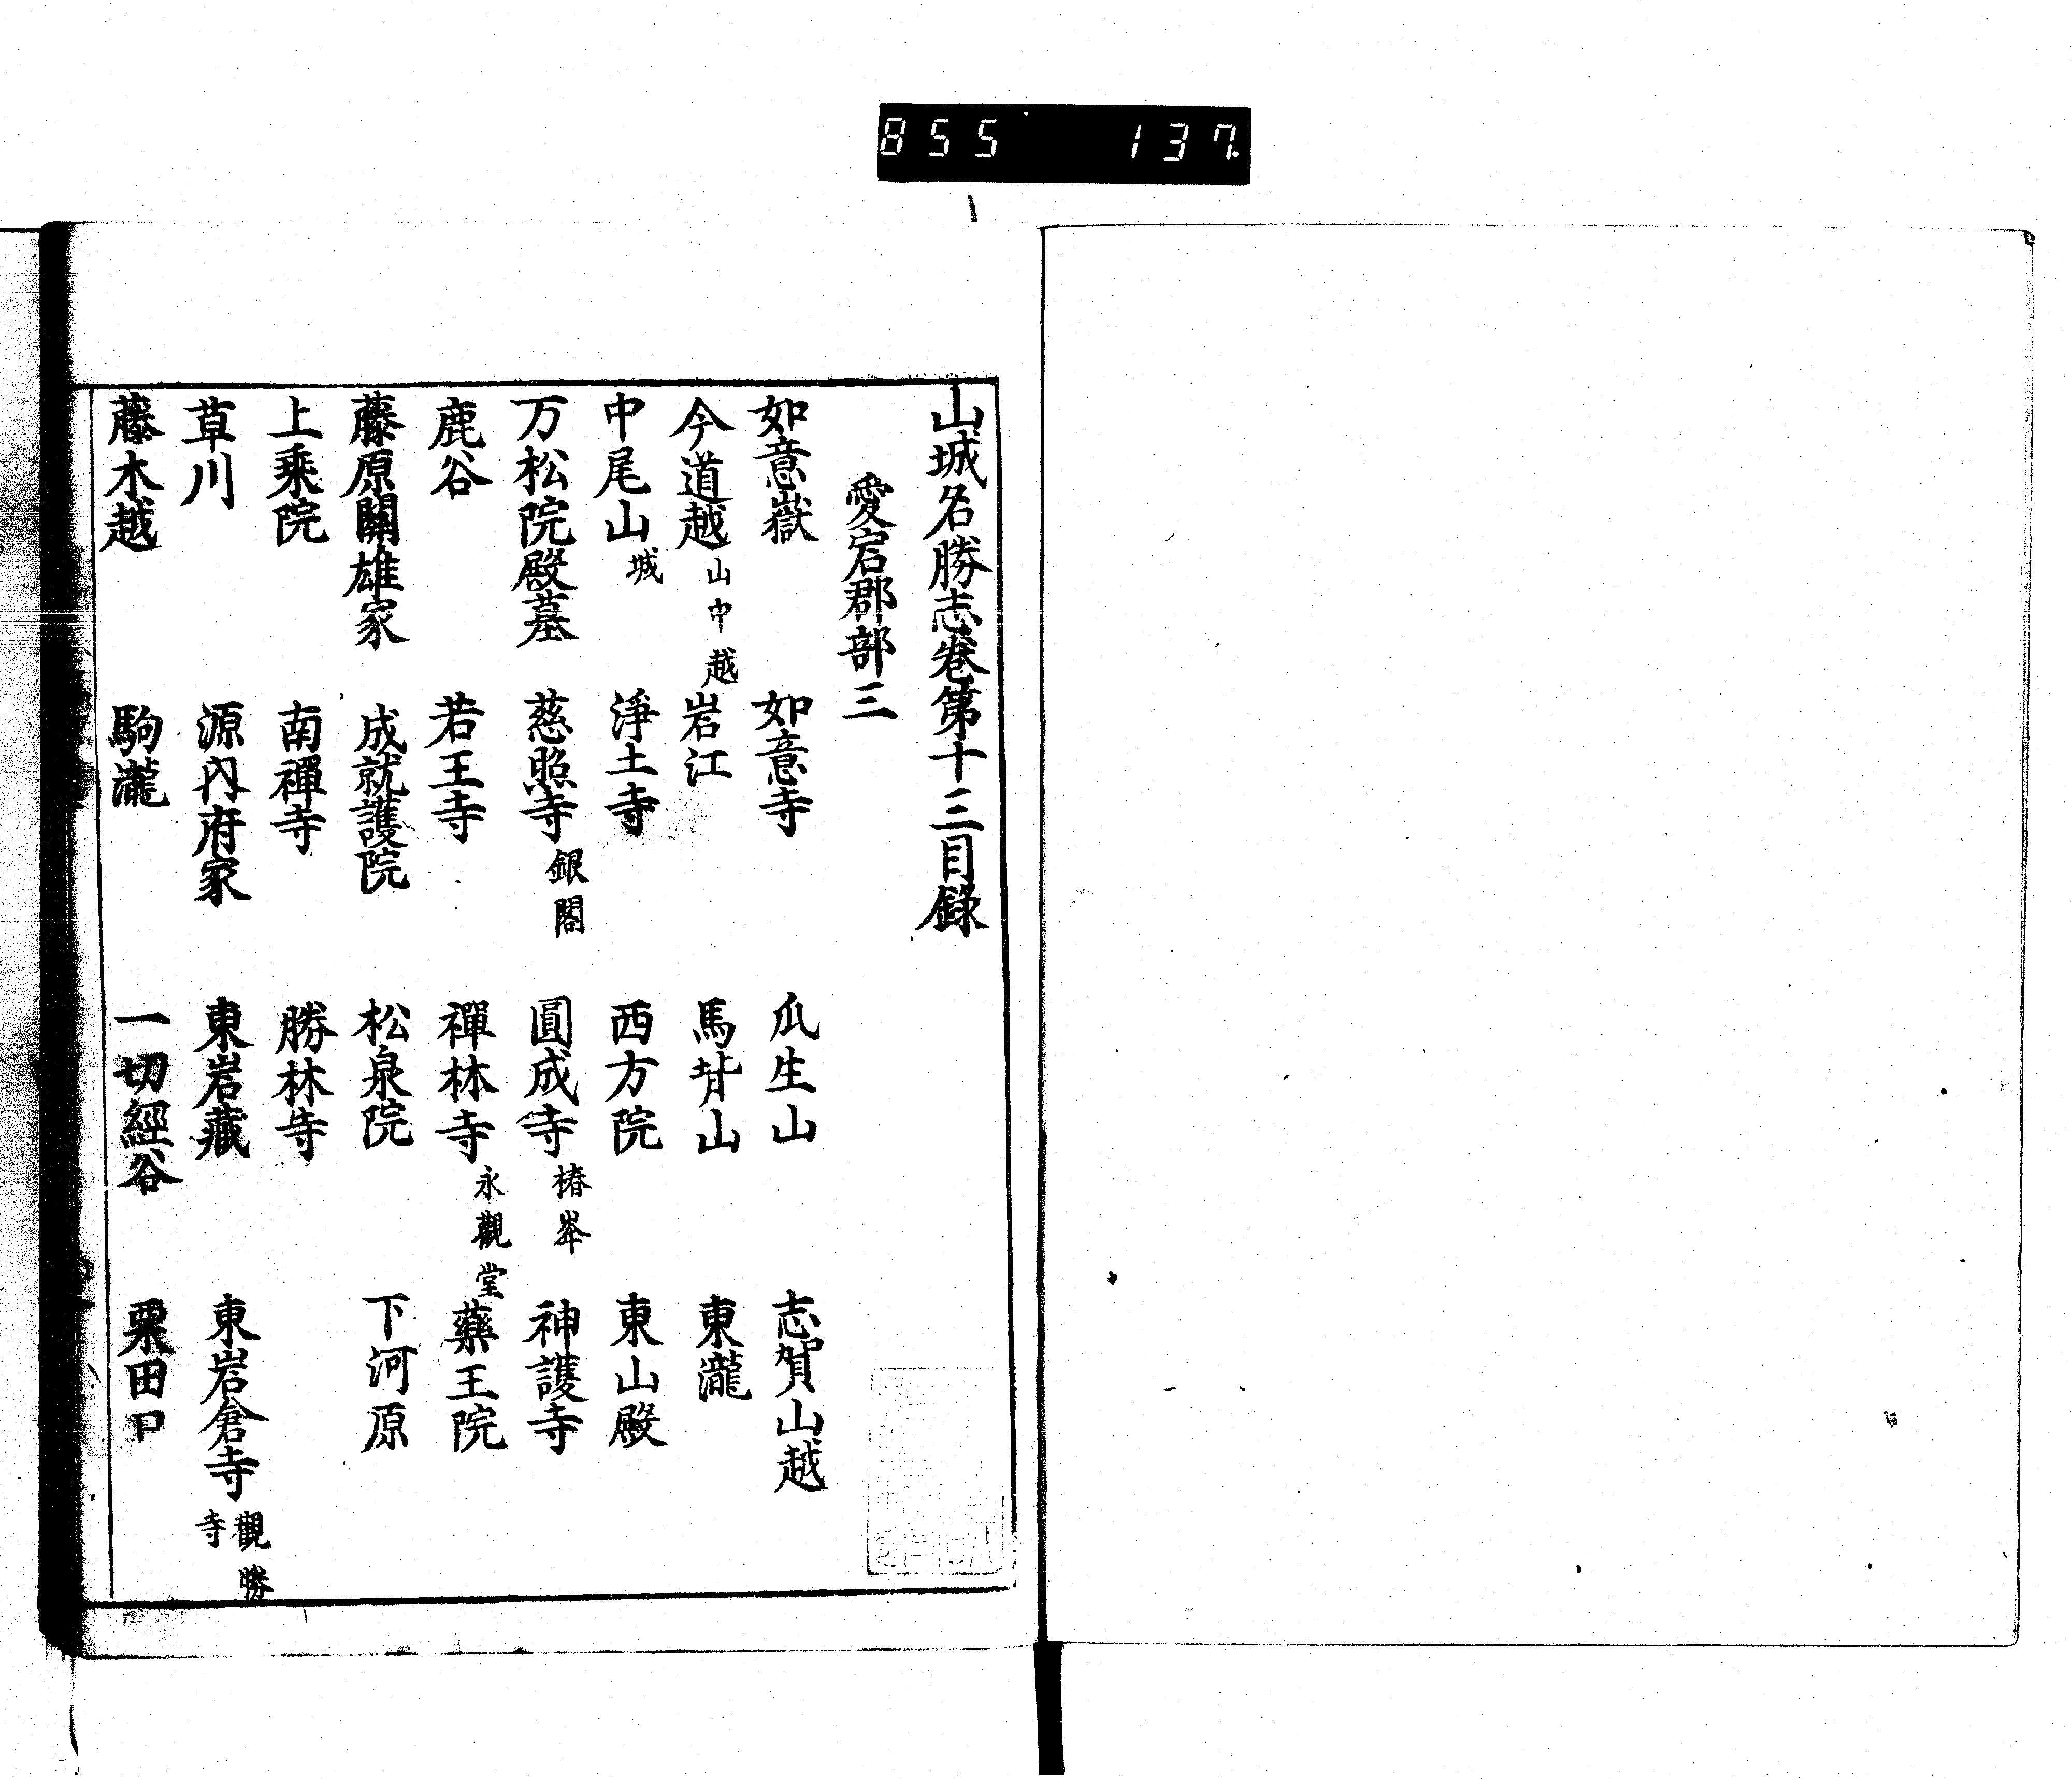 855 137
山城名勝志卷第十三目錄
愛宕郡部三
如意嶽 如意寺 瓜生山 志賀山越
今道越 山中越 岩江 馬背山 東瀧
中尾山 城 淨土寺 西方院 東山殿
万松院殿墓 慈照寺 銀閣 圓成寺 椿峯 神護寺
鹿谷 若王寺 禪林寺 永觀堂 藥王院
藤原關雄家 成就護院 松泉院 下河原
上乘院 南禪寺 勝林寺
草川 源内府家 東岩藏 東岩倉寺 觀勝寺
藤木越 駒瀧 一切經谷 粟田口